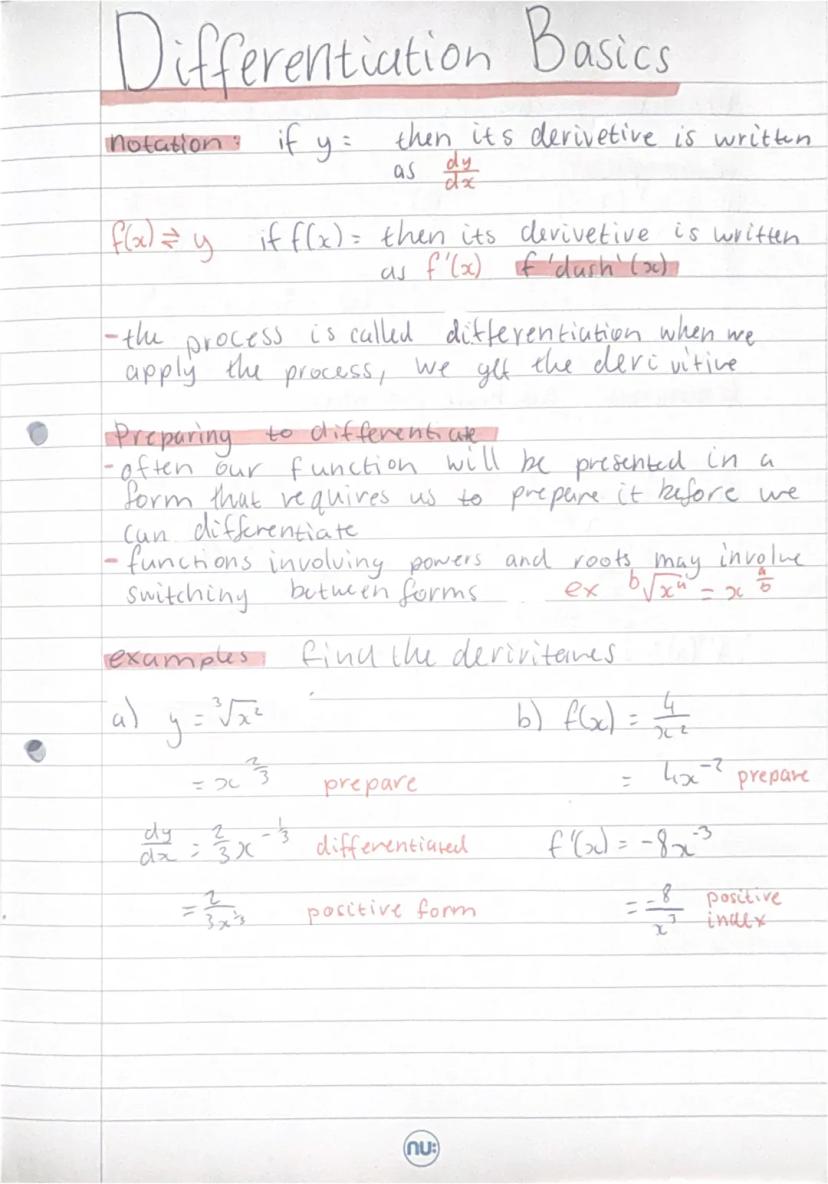 Differentiation Basics
notation: if y = then its derivetive is written
as dy/dx
f(x) ⇌ y if f(x) = then its derivetive is written
as f'(x) f'dash'(x)
- the process is called differentiation when we
apply the process, we get the derivitive
Preparing to differentiate
- often our function will be presented in a
form that requires us to prepare it before we
can differentiate
- functions involving powers and roots may involve
switching between forms ex ᵇ√xᵃ = x^(a/b)
examples find the derivitaives
a) y = ³√x² b) f(x) = 4/x²
= x^(2/3) prepare = 4x⁻² prepare
dy/dx = 2/3 x^(-1/3) differentiated f'(x) = -8x⁻³
= 2/(3x^(1/3)) positive form = -8/x³ positive index
nu: